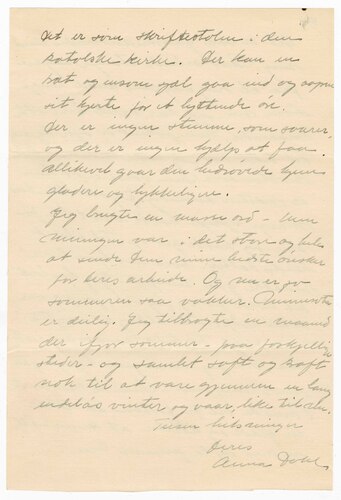 det er som skriftestolen i den
katolske kirke. Der kan en
træt og ensom sjæl gaa ind og aapne
sit hjerte for et lyttende øre.
Der er ingen stemme, som svarer
og der er ingen hjælp at faa.
Allikevel gaar den bedrøvede hjem
gladere og lykkeligere.
Jeg brugte en masse ord – men
meningen var i det store og hele
at sende Dem mine bedste ønsker
for Deres arbeide. Og nu er jo
sommeren saa vakker. Minnesota
er deilig. Jeg tilbragte en maaned
der ifjor sommer – paa forskjellige
steder – og samlet saft og kraft
nok til at vare gjennem en lang
endeløs vinter og vaar, like til nu.
Venn hilsninger
Deres
Anna Dahl